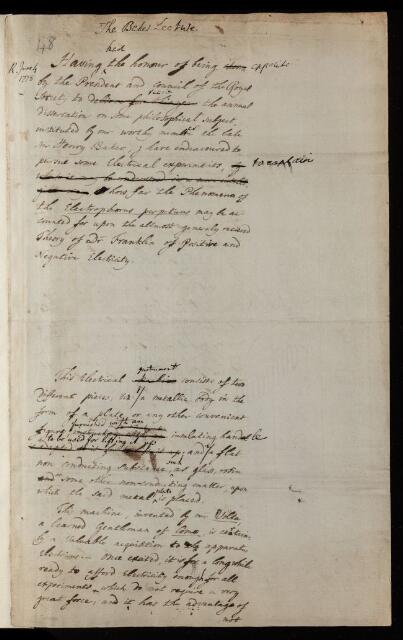 The Baker Lecture.
48
R. June 4
1778
had
Having the honour of being appointed
by the President and Council of the Royal
Society, to the annual
dissertation on some philosophical subject,
instituted by our worthy member the late
Mr Henry Baker, I have endeavoured to
pursue some Electrical experiments, to explain
how far the Phenomena of
the Electrophorus perpetuus may be ac
counted for upon the almost generally received
Theory of Dr Franklin of Positive and
Negative Electricity.
instrument
This Electrical machine consists of two
different pieces, viz. 1st a metallic body in the
form of a plate, or any other convenient
furnished with an
insulating handle
to be used for lifting it up
and 2d a flat
such
non conducting substance, as glass, rosin
and some other nonconducting matter, upon
plate
which the said metal is placed.
The machine, invented by Mr Volta
a learned Gentleman of Como, is certain
ly a valuable acquisition to apparatus
Electrical. Once excited, it is for a long while
ready to afford Electricity enough for all
experiments which do not require a very
great force, and it has the advantage of
not